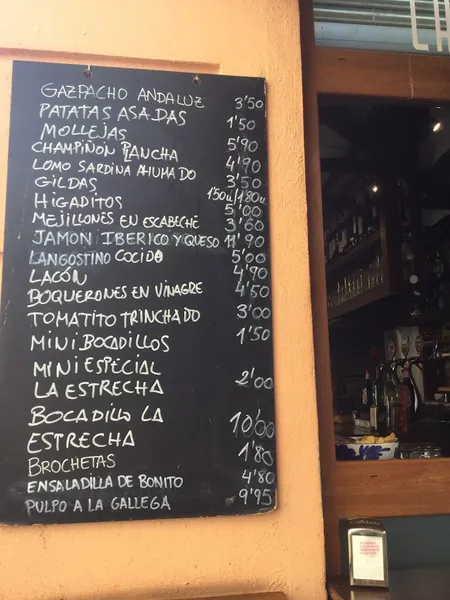 GAZPACHO ANDALUZ 3'50
PATATAS ASADAS 1'50
MOLLEJAS 5'90
CHAMPIÑON PLANCHA 4'90
LOMO SARDINA AHUMADO 3'50
GILDAS 1'50u/1'80u
HIGADITOS 5'00
MEJILLONES EN ESCABECHE 3'60
JAMON IBERICO Y QUESO 11'90
LANGOSTINO COCIDO 5'00
LACÓN 4'90
BOQUERONES EN VINAGRE 4'50
TOMATITO TRINCHADO 3'00
MINI BOCADILLOS 1'50
MINI ESPECIAL
LA ESTRECHA 2'00
BOCADILLO LA
ESTRECHA 10'00
BROCHETAS 1'80
ENSALADILLA DE BONITO 4'80
PULPO A LA GALLEGA 9'95